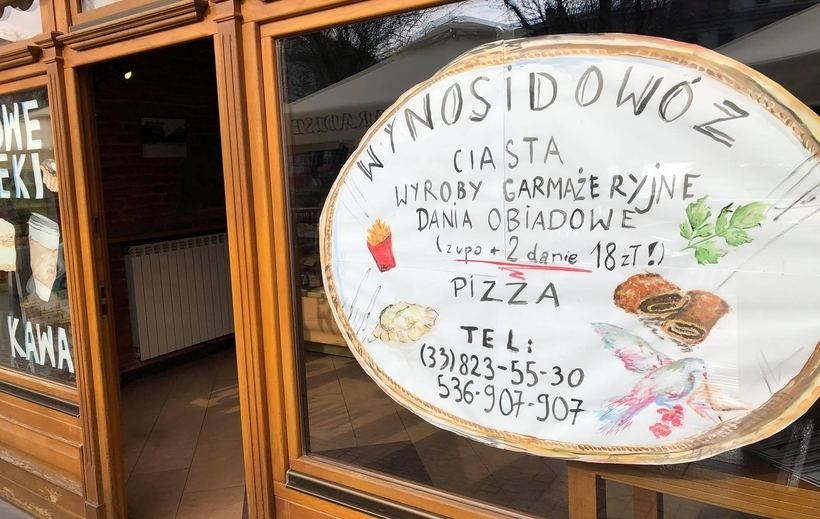 OWE
EKI
KAWA
WYNOSIDOWÓZ
CIASTA
WYROBY GARMAŻERYJNE
DANIA OBIADOWE
(zupa + 2 danie 18 zł!)
PIZZA
TEL:
(33)823-55-30
536-907-907